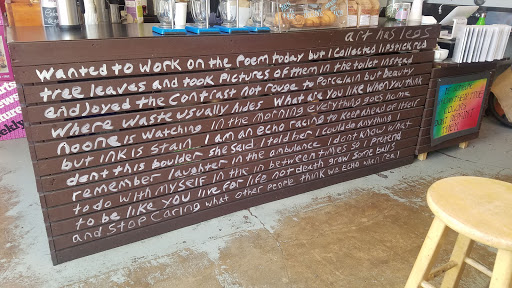 art has legs
wanted to work on the poem today but I collected lipstick red
tree leaves and took pictures of them in the toilet instead
endjoyed the contrast not rouge to porcelain but beauty
where waste usually hides what are you like when you think
noone is watching in the morning everything goes home
but ink is stain I am an echo racing to keep ahead of itself
dont this boulder she said I told her I could do anything I
remember laughter in the ambulance I dont know what
to do with myself in the in between times so I pretend
to be like you live for life not death grow some balls
and stop caring what other people think we echo when real